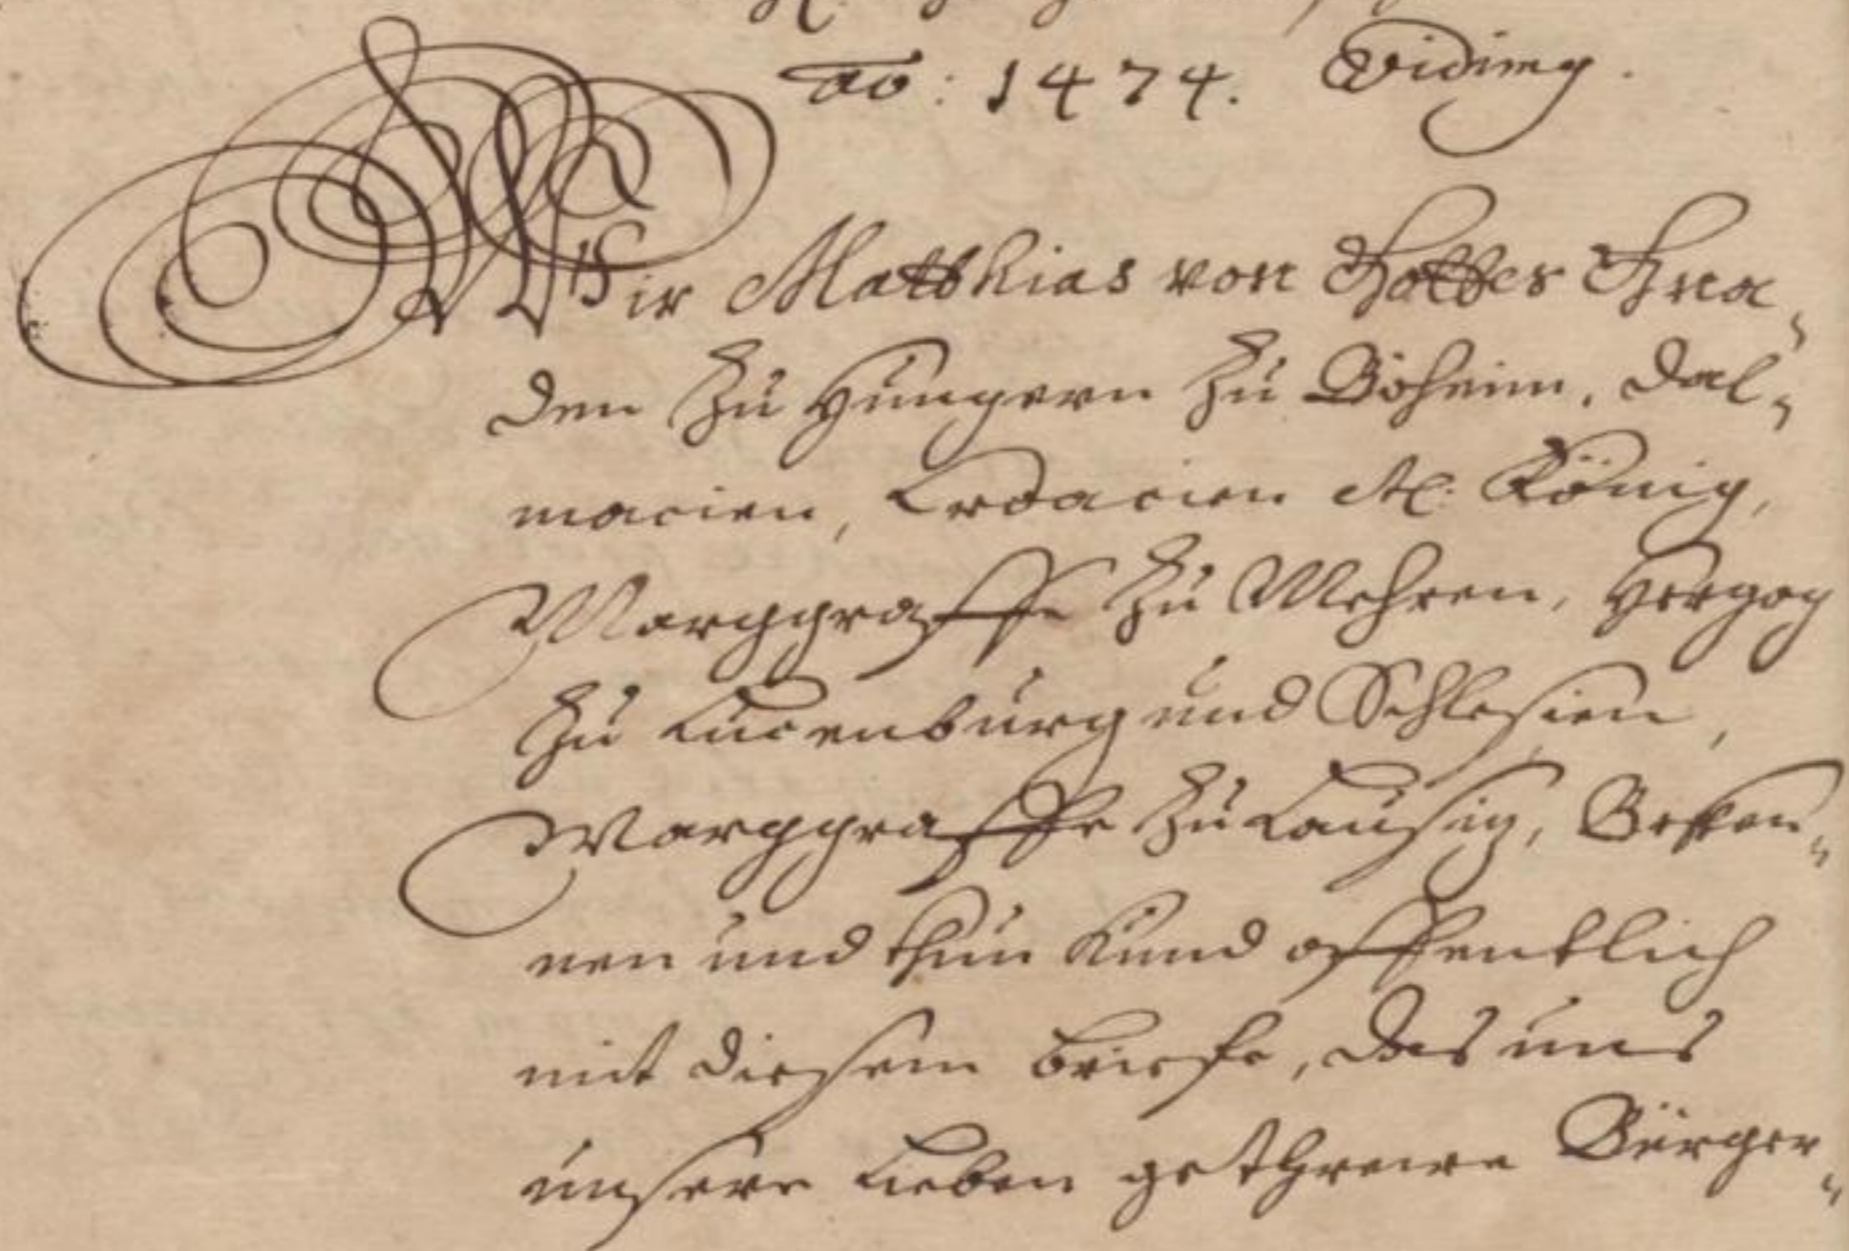 Ao: 1474. Vidimg.
Wir Matthias von Gottes Gna„
den Zu Hungern Zu Böheim, Dal„
macien, Croacien etc: König,
Marggraffe Zu Mehren, Hertzog
Zu Lucenburg und Schlesien,
Marggraffe Zu Lausitz, Beken„
nen und thun Kund offentlich
mit diesem briefe, das uns
unsere Lieben gethrewe Bürger„